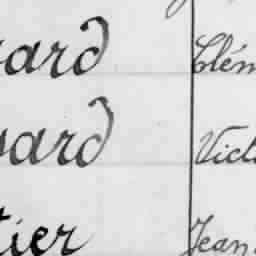 ard Clém
ard Vict
tier Jean